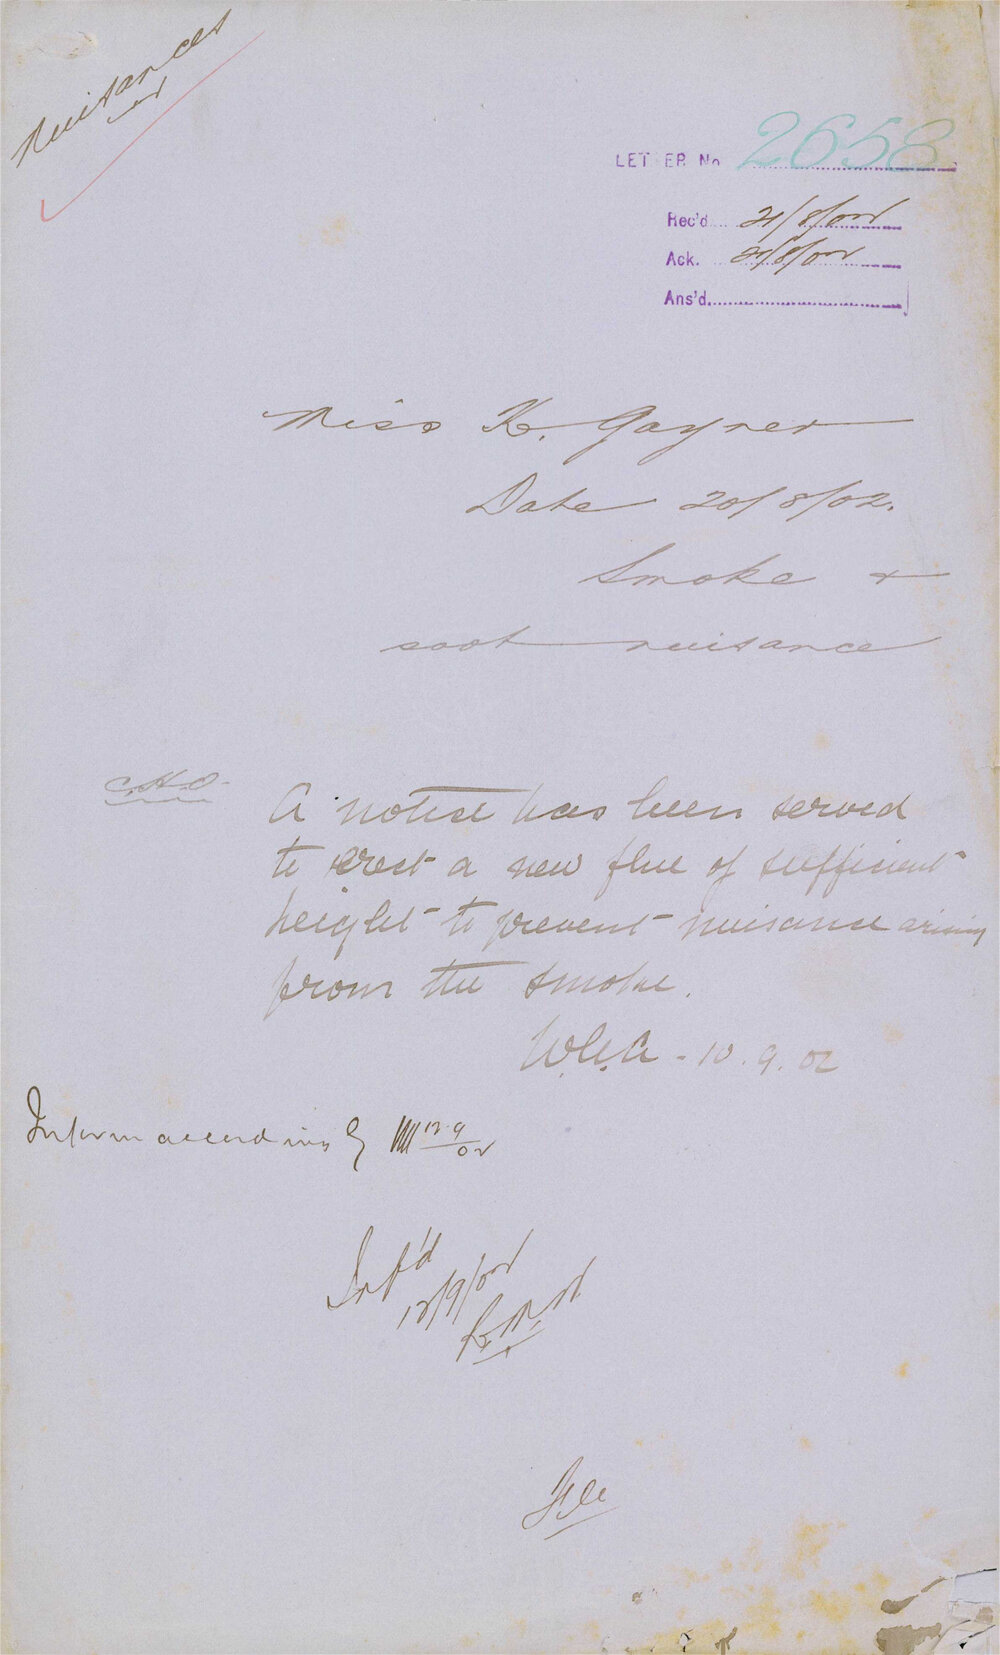 Nuisances
LETTER No 2658
Rec'd 21/8/02
Ack. 21/8/02
Ans'd
Miss K. Gayner
Date 20/8/02.
Smoke +
soot nuisance
C.H.O.
A notice has been served
to erect a new flue of sufficient
height to prevent nuisance arising
from the smoke.
W.G.A - 10.9.02
Inform accordingly 12.9/02
Inf'd
12/9/02
File